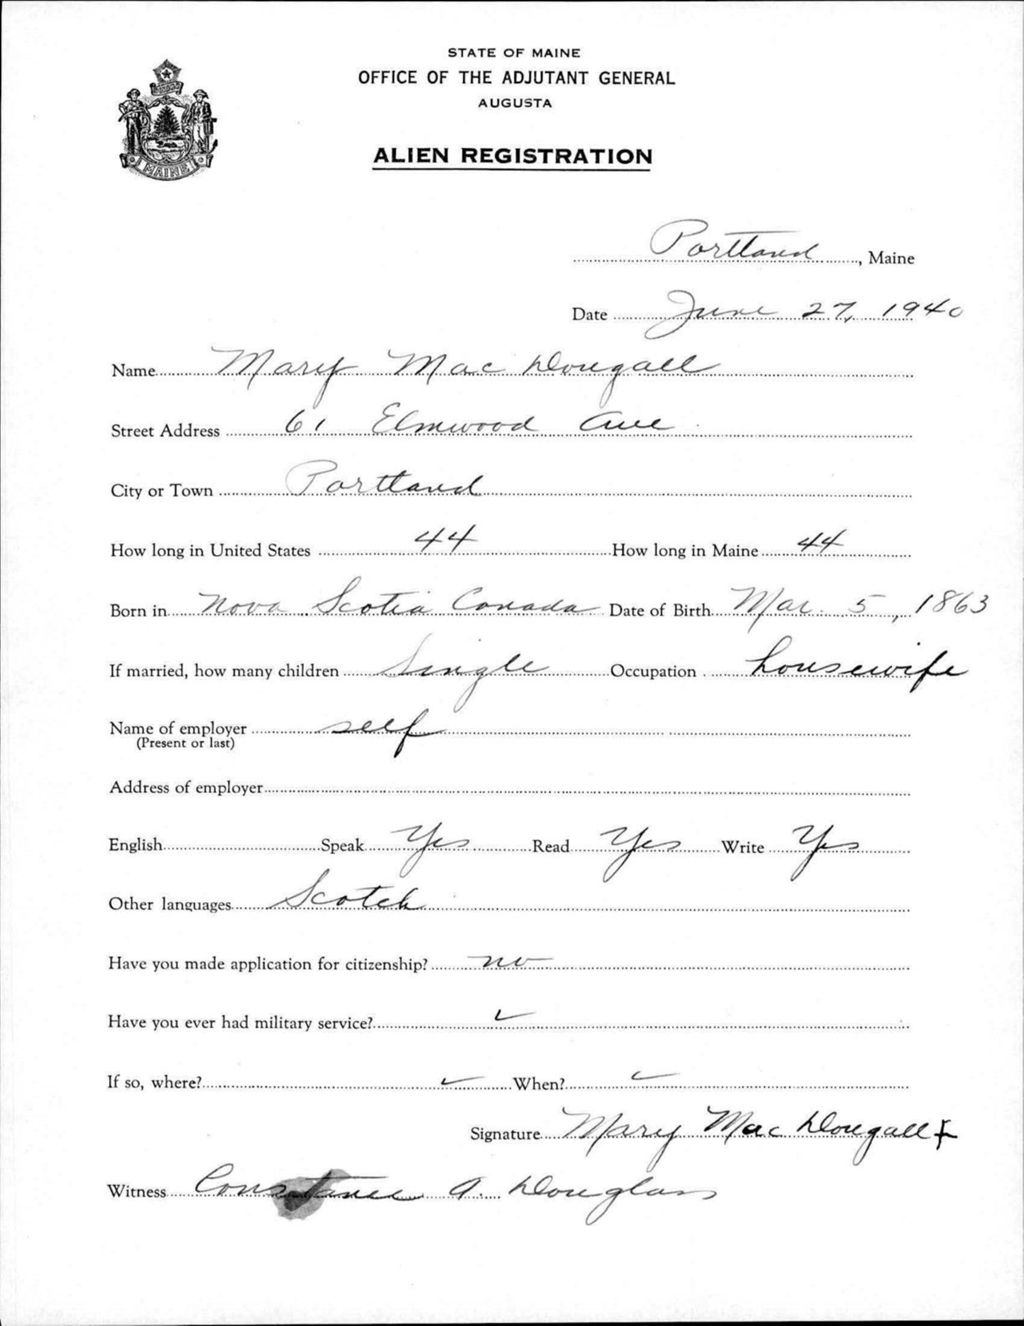 STATE OF MAINE
OFFICE OF THE ADJUTANT GENERAL
AUGUSTA
ALIEN REGISTRATION
MAINE
Portland, Maine
Date June 27, 1940
Name Mary MacDougall
Street Address 61 Elmwood Ave.
City or Town Portland
How long in United States 44 How long in Maine 44
Born in Nova Scotia Canada Date of Birth Mar. 5, 1863
If married, how many children Single Occupation housewife
Name of employer self
(Present or last)
Address of employer
English Speak Yes Read Yes Write Yes
Other languages Scotch
Have you made application for citizenship? no
Have you ever had military service? ✓
If so, where? ✓ When? ✓
Signature Mary MacDougall
Witness Constance A. Douglass